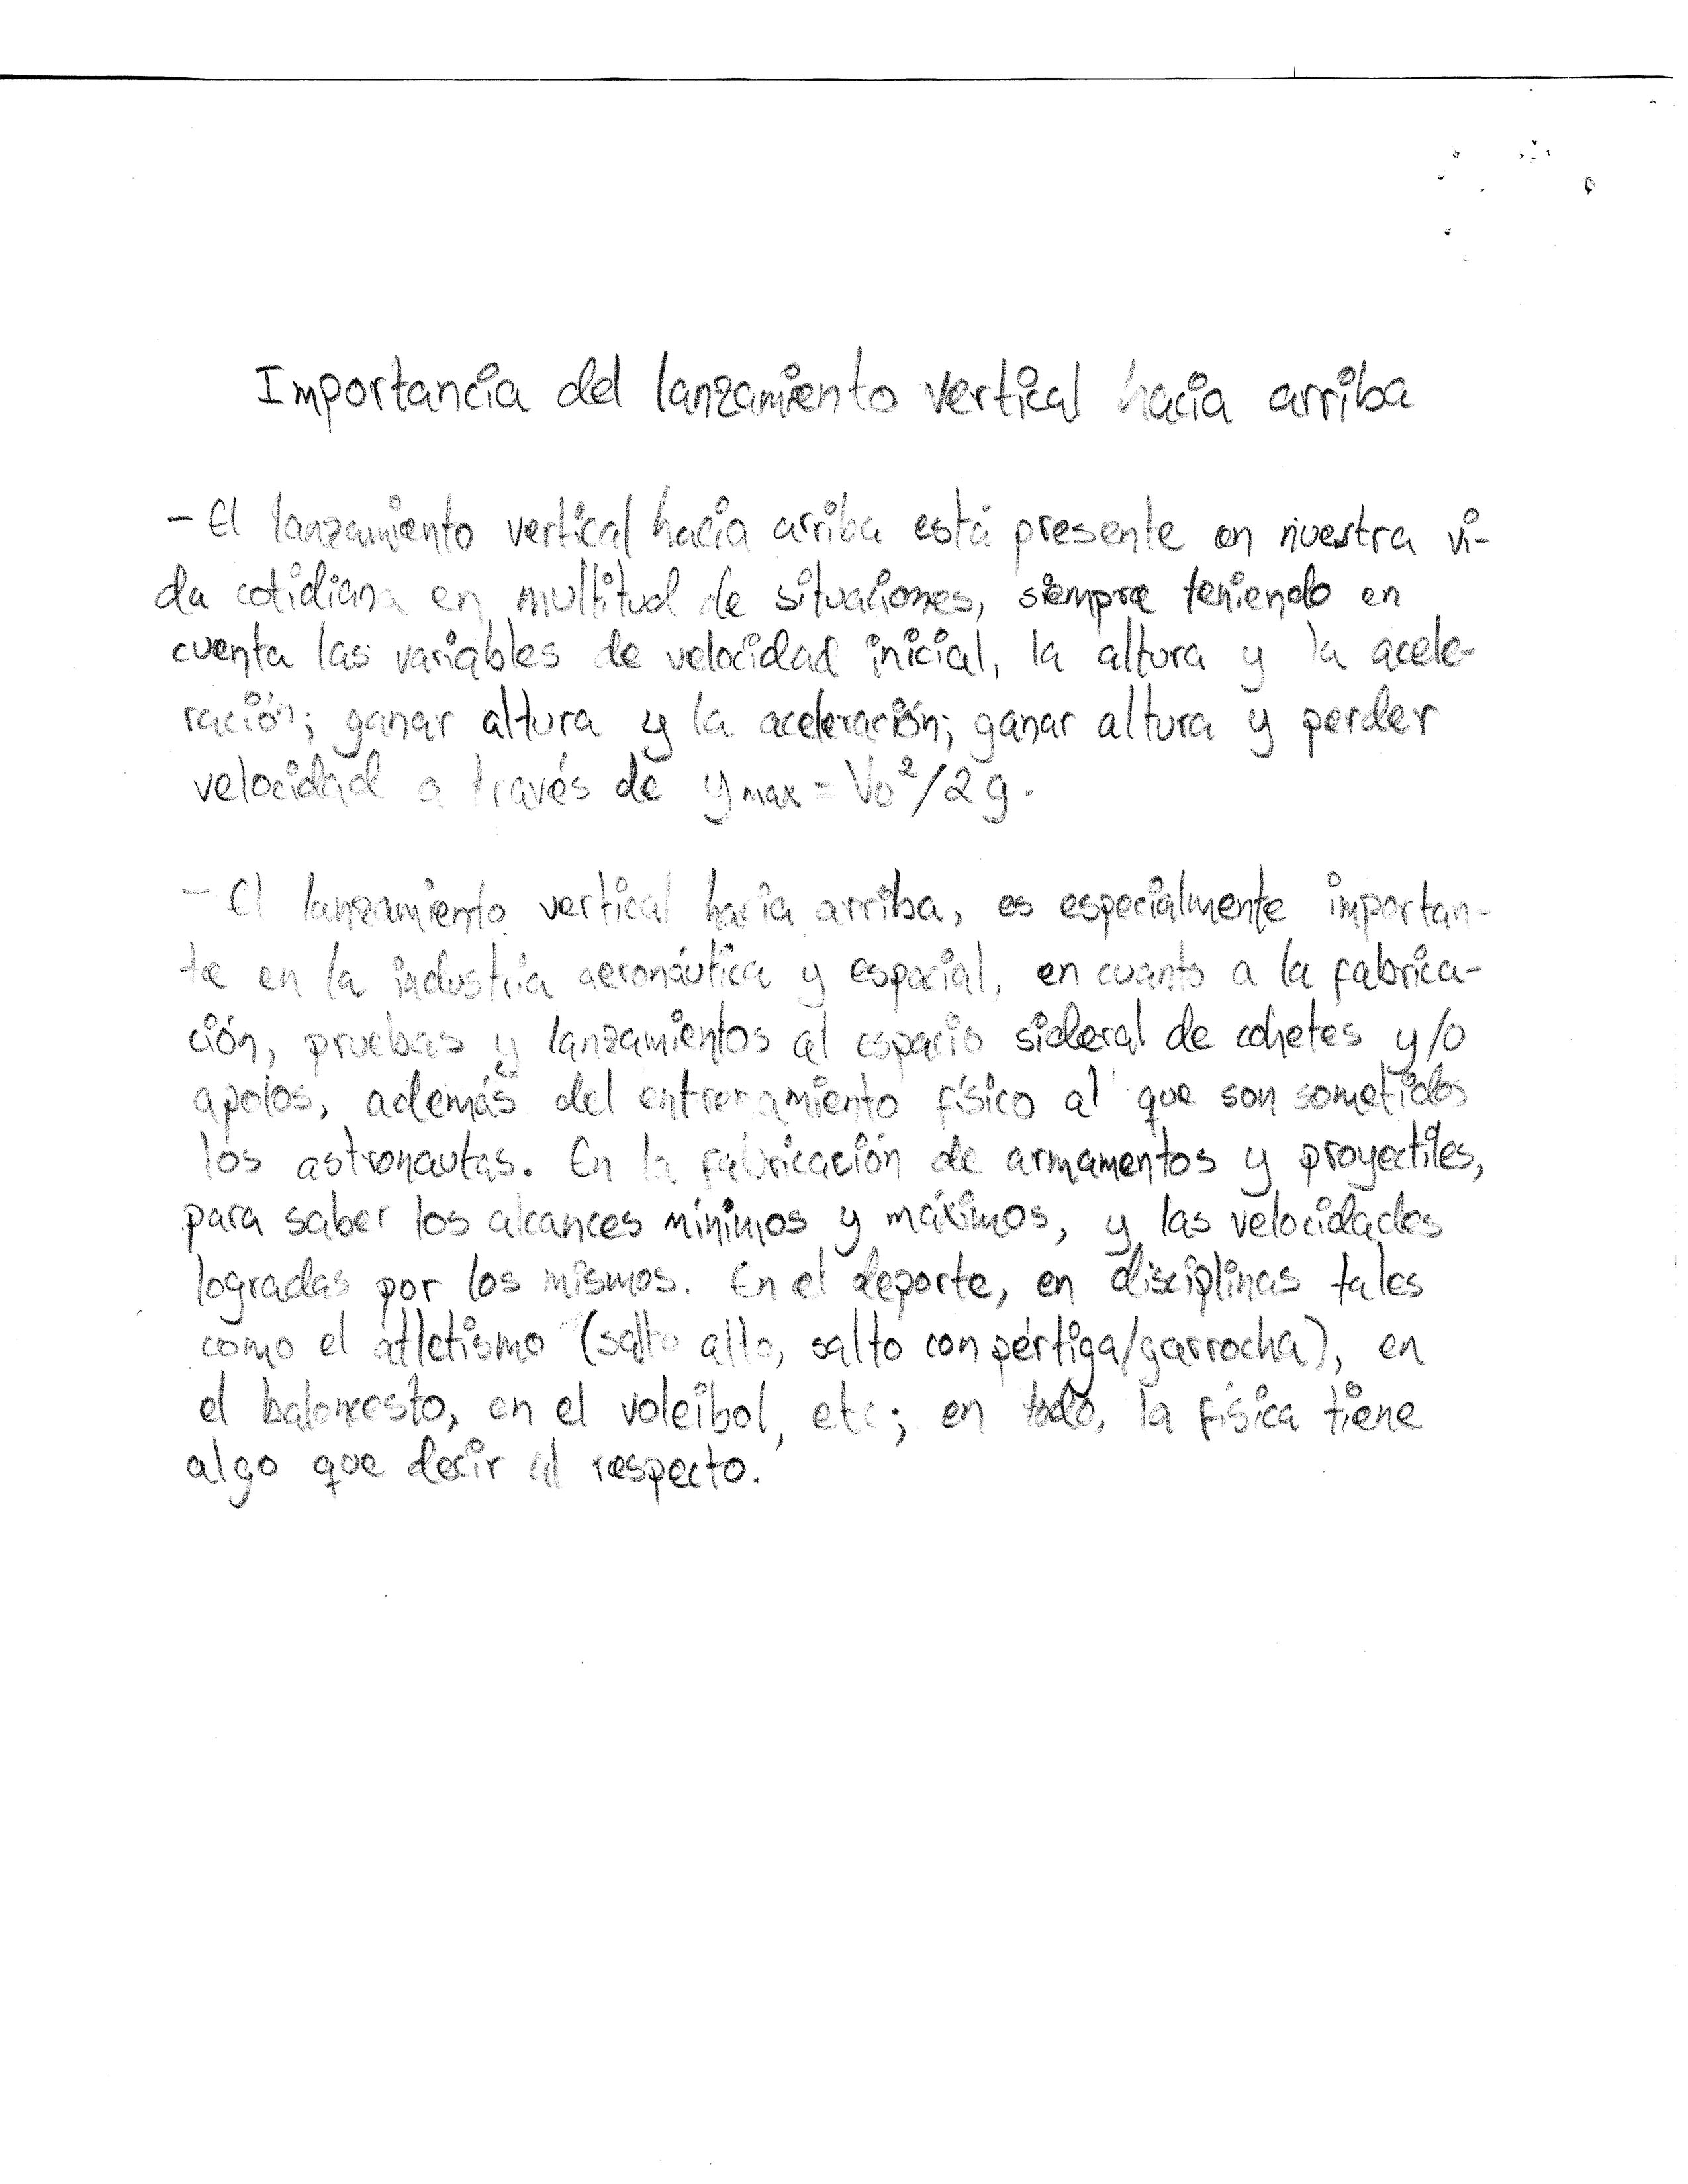 Importancia del lanzamiento vertical hacia arriba
- El lanzamiento vertical hacia arriba está presente en nuestra vi-
da cotidiana en multitud de situaciones, siempre teniendo en
cuenta las variables de velocidad inicial, la altura y la acele-
ración; ganar altura y la aceleración; ganar altura y perder
velocidad a través de y max = Vo²/2g.
- El lanzamiento vertical hacia arriba, es especialmente importan-
te en la industria aeronáutica y espacial, en cuanto a la fabrica-
ción, pruebas y lanzamientos al espacio sideral de cohetes y/o
apolos, además del entrenamiento físico al que son sometidos
los astronautas. En la fabricación de armamentos y proyectiles,
para saber los alcances mínimos y máximos, y las velocidades
logradas por los mismos. En el deporte, en disciplinas tales
como el atletismo (salto alto, salto con pértiga/garrocha), en
el baloncesto, en el voleibol, etc; en todo, la física tiene
algo que decir al respecto.